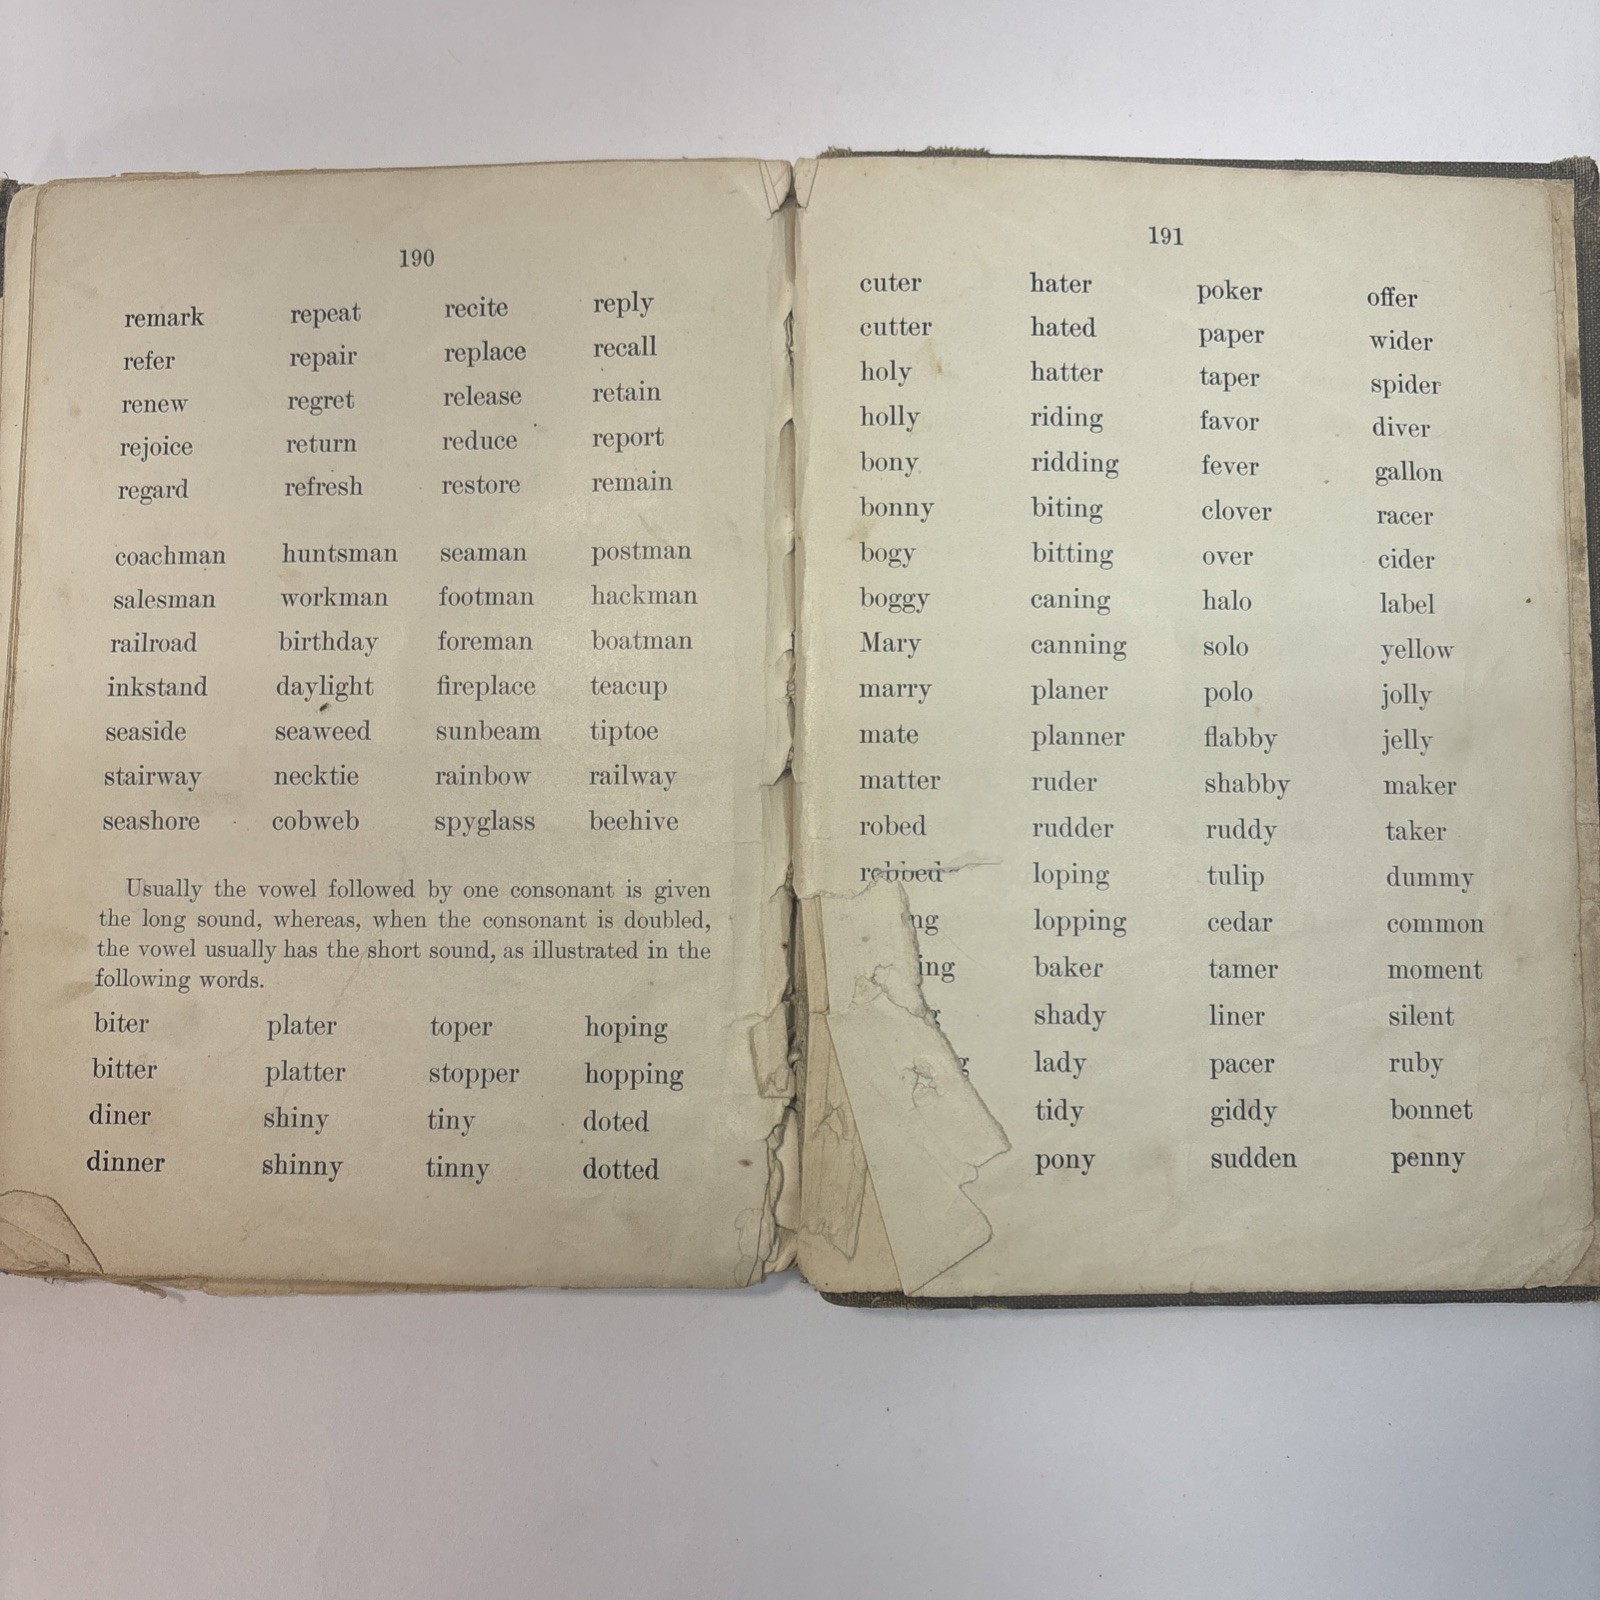 190
remark repeat recite reply
refer repair replace recall
renew regret release retain
rejoice return reduce report
regard refresh restore remain
coachman huntsman seaman postman
salesman workman footman hackman
railroad birthday foreman boatman
inkstand daylight fireplace teacup
seaside seaweed sunbeam tiptoe
stairway necktie rainbow railway
seashore cobweb spyglass beehive
Usually the vowel followed by one consonant is given
the long sound, whereas, when the consonant is doubled,
the vowel usually has the short sound, as illustrated in the
following words.
biter plater toper hoping
bitter platter stopper hopping
diner shiny tiny doted
dinner shinny tinny dotted
191
cuter hater poker offer
cutter hated paper wider
holy hatter taper spider
holly riding favor diver
bony ridding fever gallon
bonny biting clover racer
bogy bitting over cider
boggy caning halo label
Mary canning solo yellow
marry planer polo jolly
mate planner flabby jelly
matter ruder shabby maker
robed rudder ruddy taker
robbed loping tulip dummy
lopping cedar common
baker tamer moment
shady liner silent
lady pacer ruby
tidy giddy bonnet
pony sudden penny